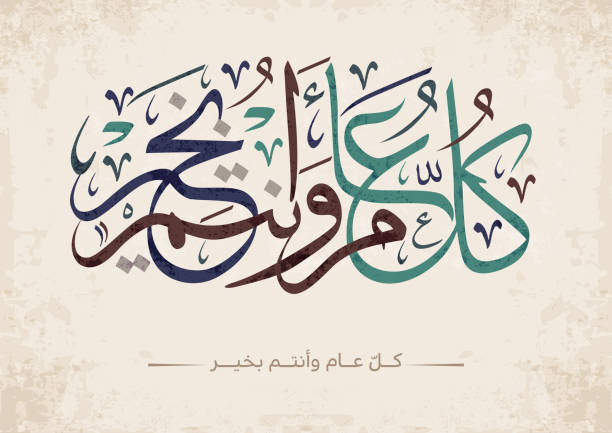 كل عام وأنتم بخير
كلّ عـام وأنتـم بخيـر